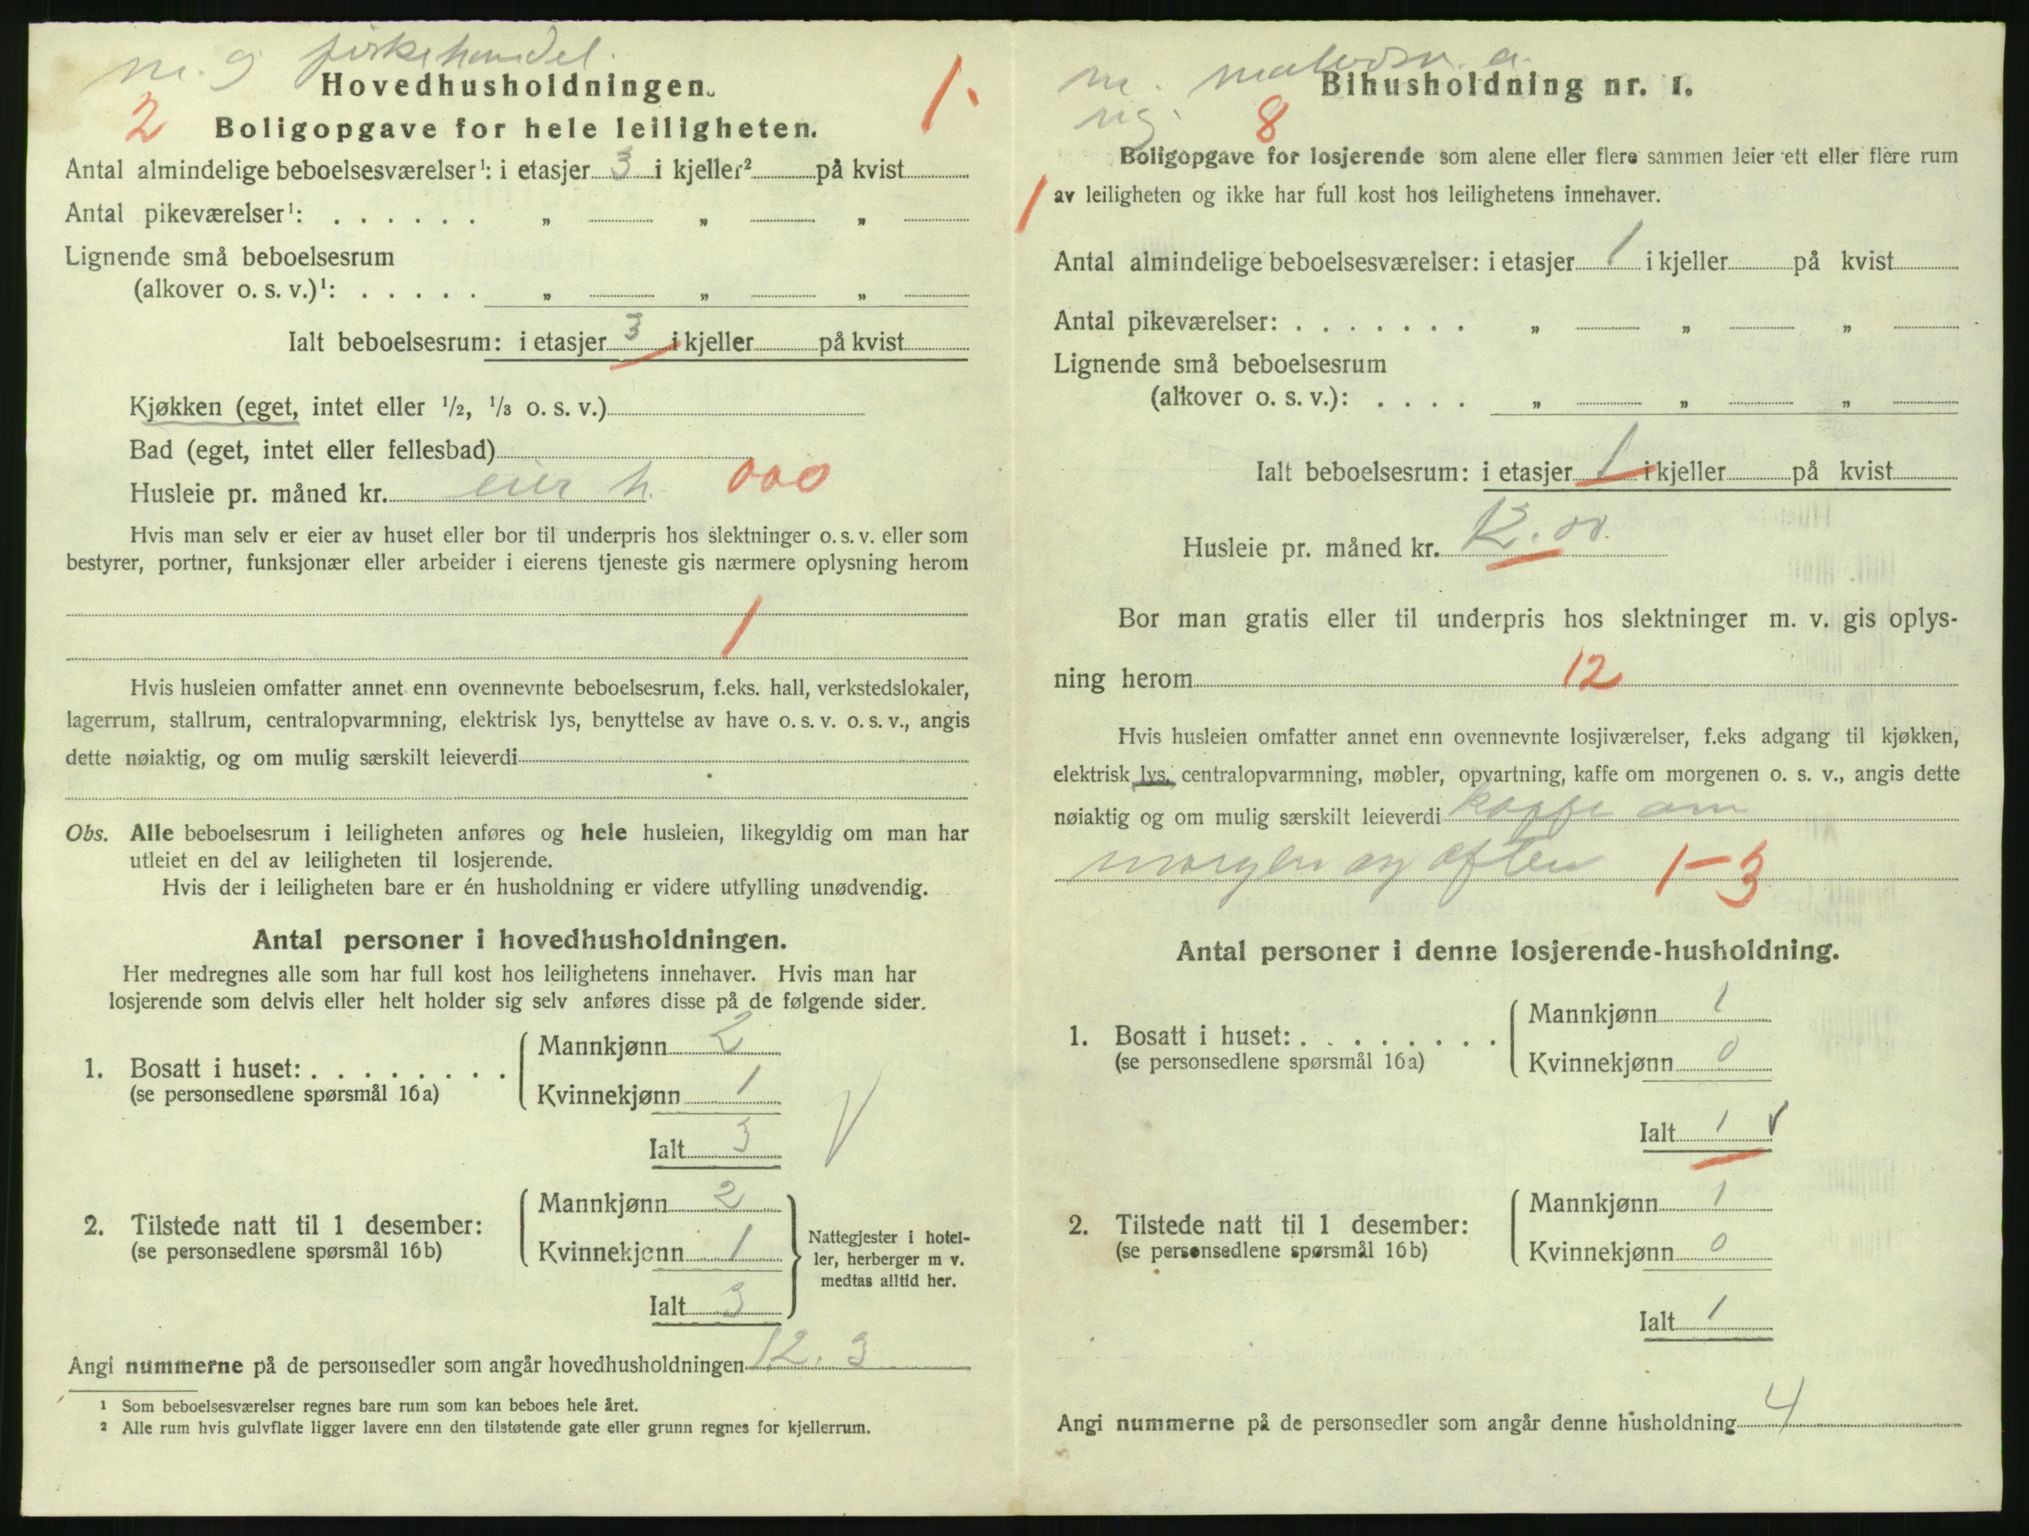 m. g fiskehandel.
Hovedhusholdningen.
2
1.
Boligopgave for hele leiligheten.
Antal almindelige beboelsesværelser¹: i etasjer 3 i kjeller² på kvist
Antal pikeværelser¹: . . . . . . „ „ „
Lignende små beboelsesrum
(alkover o. s. v.)¹: . . . . . „ „ „
Ialt beboelsesrum: i etasjer 3 i kjeller på kvist
Kjøkken (eget, intet eller 1/2, 1/3 o. s. v.)
Bad (eget, intet eller fellesbad)
Husleie pr. måned kr. eier h. 000
Hvis man selv er eier av huset eller bor til underpris hos slektninger o. s. v. eller som
bestyrer, portner, funksjonær eller arbeider i eierens tjeneste gis nærmere oplysning herom
1
Hvis husleien omfatter annet enn ovennevnte beboelsesrum, f.eks. hall, verkstedslokaler,
lagerrum, stallrum, centralopvarmning, elektrisk lys, benyttelse av have o. s. v. o. s. v., angis
dette nøiaktig, og om mulig særskilt leieverdi
Obs. Alle beboelsesrum i leiligheten anføres og hele husleien, likegyldig om man har
utleiet en del av leiligheten til losjerende.
Hvis der i leiligheten bare er én husholdning er videre utfylling unødvendig.
Antal personer i hovedhusholdningen.
Her medregnes alle som har full kost hos leilighetens innehaver. Hvis man har
losjerende som delvis eller helt holder sig selv anføres disse på de følgende sider.
1. Bosatt i huset: . . . . . . . .
(se personsedlene spørsmål 16a)
Mannkjønn 2
Kvinnekjønn 1
Ialt 3
2. Tilstede natt til 1 desember:
(se personsedlene spørsmål 16b)
Mannkjønn 2
Kvinnekjønn 1
Ialt 3
Nattegjester i hotel-
ler, herberger m v.
medtas alltid her.
Angi nummerne på de personsedler som angår hovedhusholdningen 12. 3
1 Som beboelsesværelser regnes bare rum som kan beboes hele året.
2 Alle rum hvis gulvflate ligger lavere enn den tilstøtende gate eller grunn regnes for kjellerrum.
m. a.
Bihusholdning nr. 1.
8
Boligopgave for losjerende som alene eller flere sammen leier ett eller flere rum
1 av leiligheten og ikke har full kost hos leilighetens innehaver.
Antal almindelige beboelsesværelser: i etasjer 1 i kjeller på kvist
Antal pikeværelser: . . . . . . . „ „ „
Lignende små beboelsesrum
(alkover o. s. v.): . . . . „ „ „
Ialt beboelsesrum: i etasjer 1 i kjeller på kvist
Husleie pr. måned kr. 12.00
Bor man gratis eller til underpris hos slektninger m. v. gis oplys-
ning herom 12
Hvis husleien omfatter annet enn ovennevnte losjiværelser, f.eks adgang til kjøkken,
elektrisk lys, centralopvarmning, møbler, opvartning, kaffe om morgenen o. s. v., angis dette
nøiaktig og om mulig særskilt leieverdi kaffe om
morgen og aften 1-3
Antal personer i denne losjerende-husholdning.
1. Bosatt i huset: . . . . . . . .
(se personsedlene spørsmål 16a)
Mannkjønn 1
Kvinnekjønn 0
Ialt 1
2. Tilstede natt til 1 desember:
(se personsedlene spørsmål 16b)
Mannkjønn 1
Kvinnekjønn 0
Ialt 1
Angi nummerne på de personsedler som angår denne husholdning 4